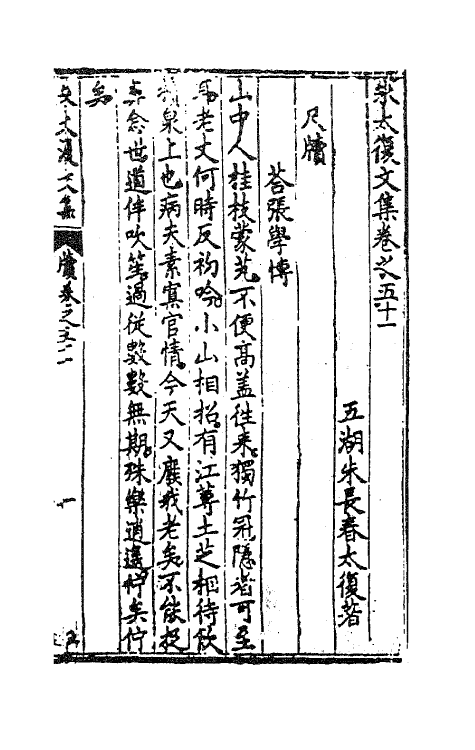 朱太復文集卷之五十一
五湖朱長春太復著
尺牘
荅張學博
山中人桂枝蒙茏不便高盖往来獨竹冠隱者可至
馬老丈何時反初吟小山相招有江蓴土芝相待飲
泉上也病夫素寡官情今天又廢我老矣不能投
念世道伴吹笙過從數數無期殊樂逍遙竚矣佇
矣
朱太復文集
牘卷之五十一
一